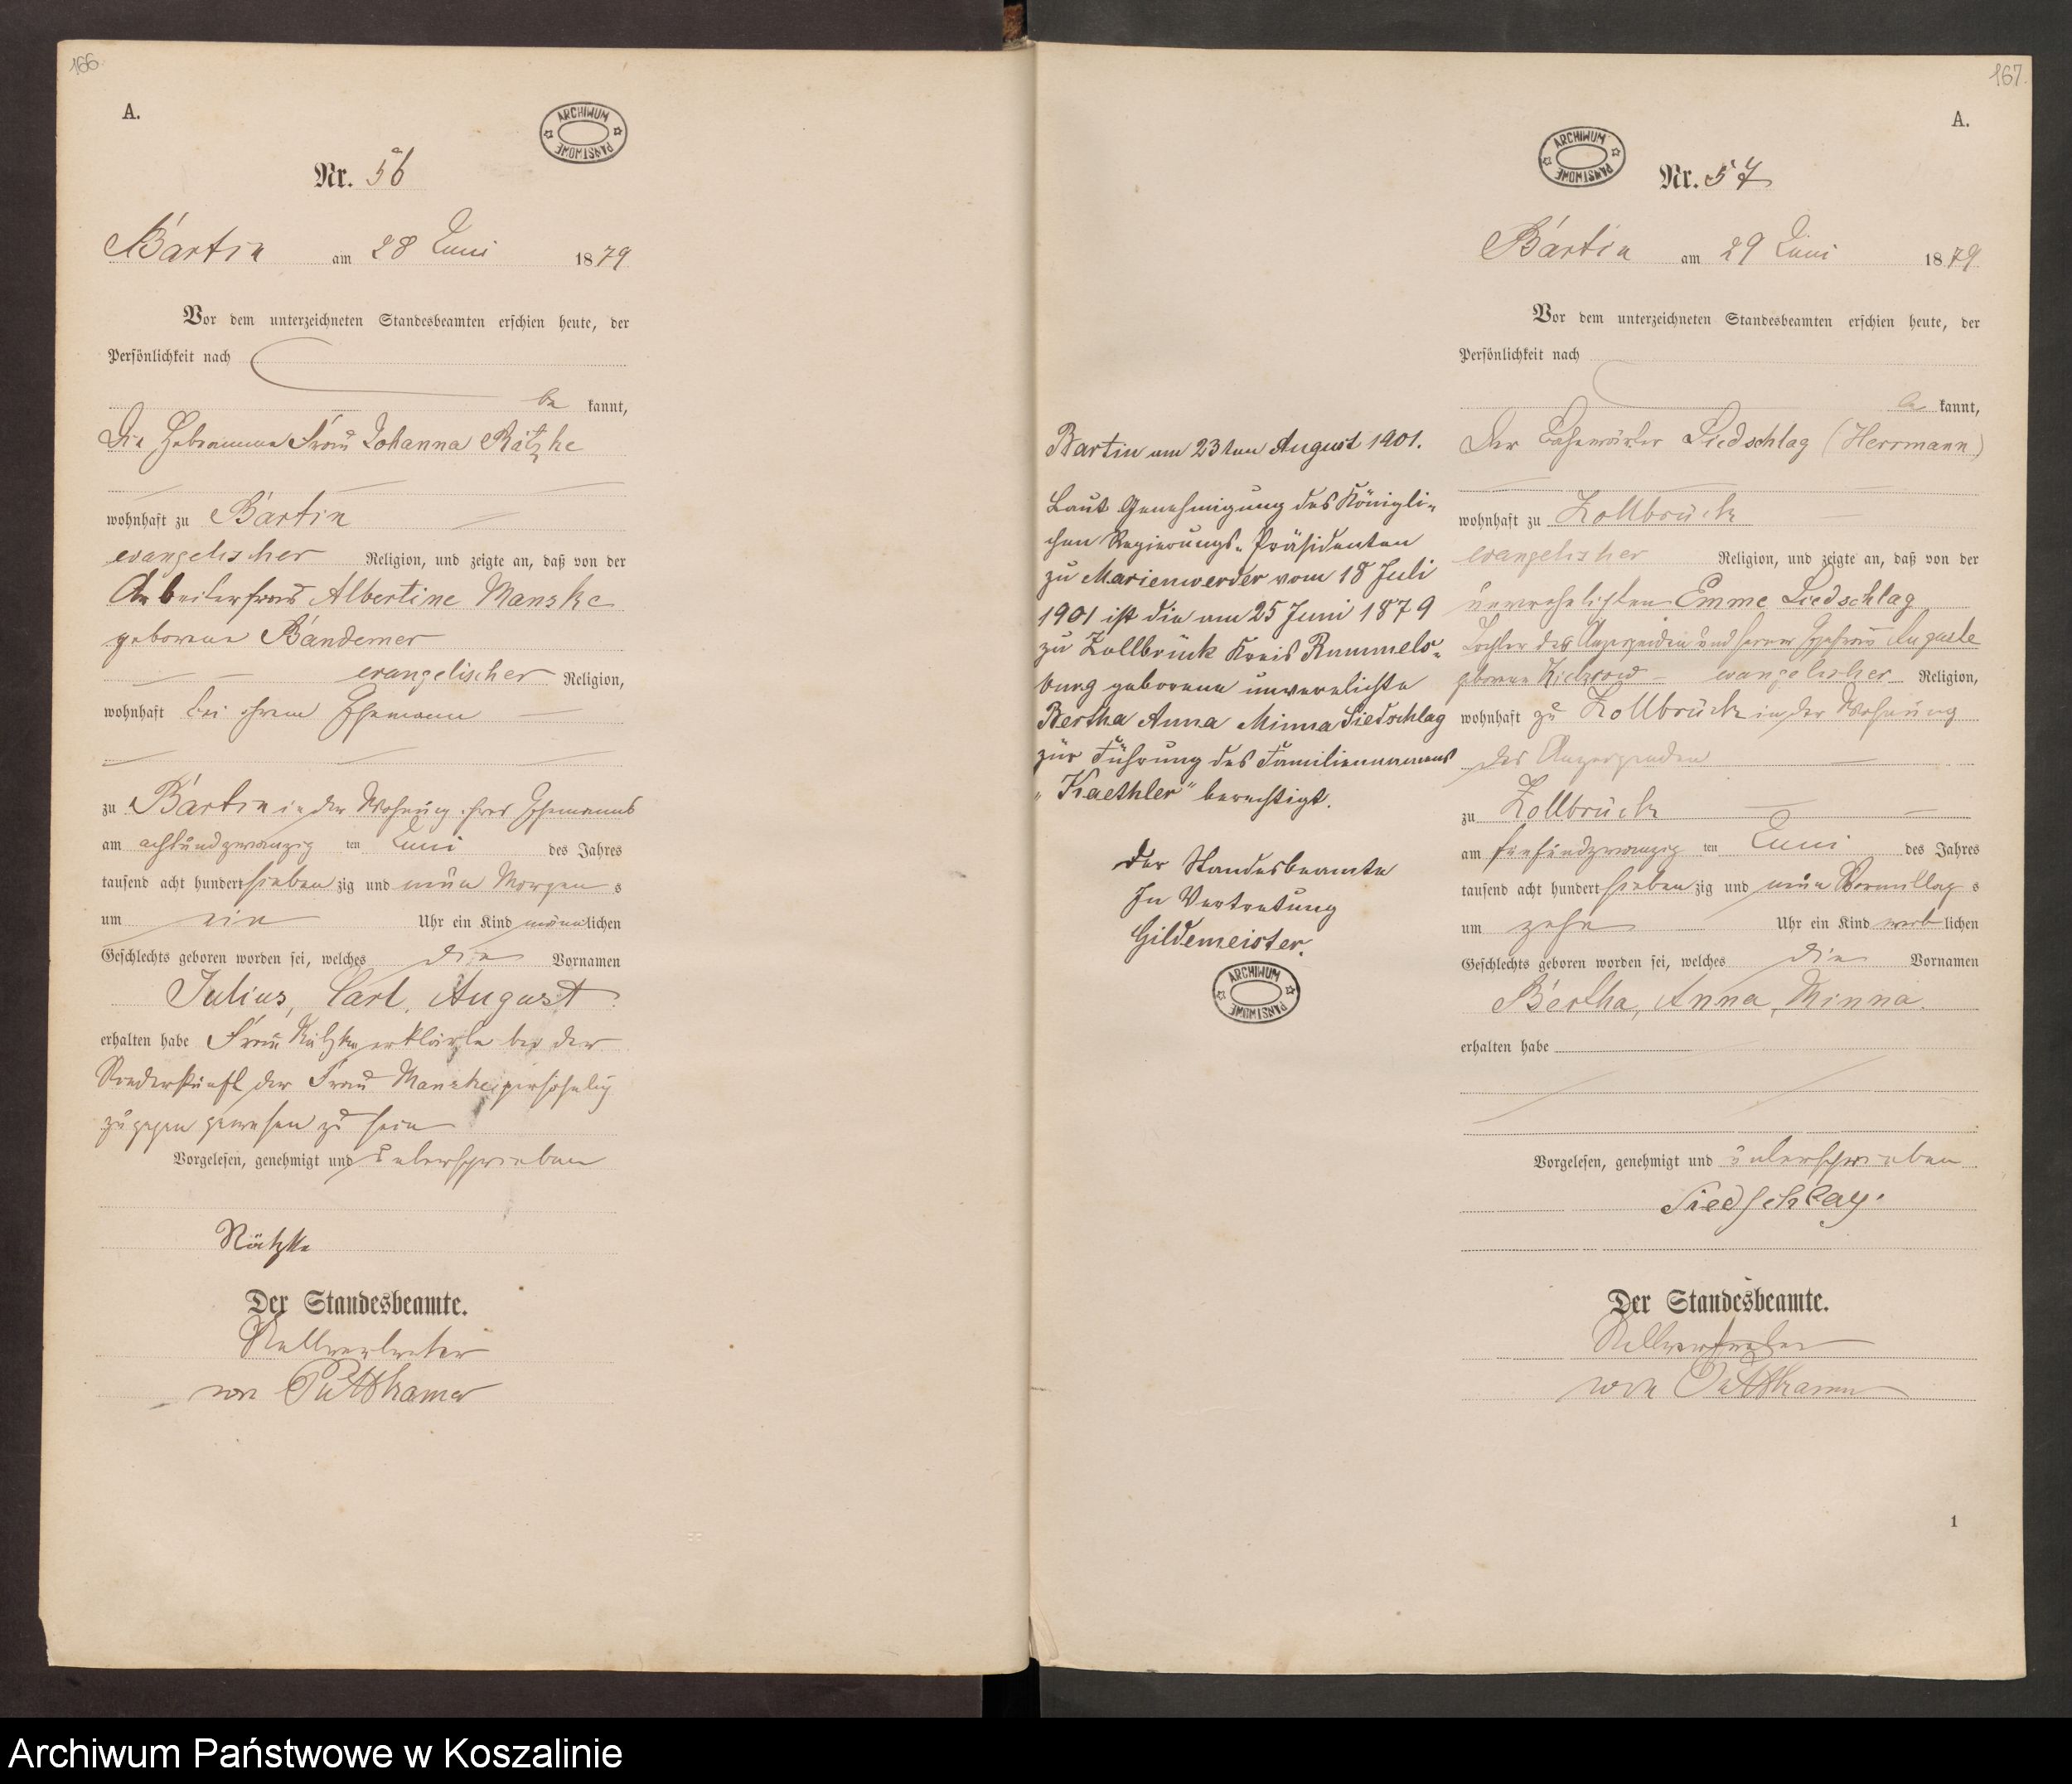 166.
A.
ARCHIWUM PAŃSTWOWE
Nr. 56
Bartin am 28 Juni 1879
Vor dem unterzeichneten Standesbeamten erschien heute, der
Persönlichkeit nach
be kannt,
Die Hebamme Frau Johanna Rätzke
wohnhaft zu Bartin
evangelischer Religion, und zeigte an, daß von der
Arbeiterfrau Albertine Manske
geborene Bandemer
evangelischer Religion,
wohnhaft bei ihrem Ehemann
zu Bartin in der Wohnung ihres Ehemanns
am achtundzwanzig ten Juni des Jahres
tausend acht hundert sieben zig und neun Morgen s
um ein Uhr ein Kind männlichen
Geschlechts geboren worden sei, welches die Vornamen
Julius, Carl, August
erhalten habe Frau Rätzke erklärte bei der
Niederkunft der Frau Manske persöhnlig
zugegen gewesen zu sein
Vorgelesen, genehmigt und unterschrieben
Rätzke
Der Standesbeamte.
Stellvertreter
von Puttkamer
167.
A.
ARCHIWUM PAŃSTWOWE
Nr. 57
Bartin am 29 Juni 1879
Vor dem unterzeichneten Standesbeamten erschien heute, der
Persönlichkeit nach
be kannt,
Der Bahnwärter Siedschlag (Herrmann)
wohnhaft zu Zollbrück
evangelischer Religion, und zeigte an, daß von der
unverehelichten Emme Siedschlag
Tochter des Anzeigenden und seiner Ehefrau Auguste
geborene evangelischer Religion,
wohnhaft zu Zollbrück in der Wohnung
des Anzeigenden
zu Zollbrück
am fünfundzwanzig ten Juni des Jahres
tausend acht hundert sieben zig und neun Vormittag s
um zehn Uhr ein Kind weib lichen
Geschlechts geboren worden sei, welches die Vornamen
Bertha, Anna, Minna.
erhalten habe
Vorgelesen, genehmigt und unterschrieben
Siedschlag.
Der Standesbeamte.
Stellvertreter
von Puttkamer
1
Bartin am 23ten August 1901.
Laut Genehmigung des Königli-
chen Regierungs-Präsidenten
zu Marienwerder vom 18 Juli
1901 ist die am 25 Juni 1879
zu Zollbrück Kreis Rummels-
burg geborene unverelichte
Bertha Anna Minna Siedschlag
zur Führung des Familiennamens
„Kaethler“ berechtigt.
Der Standesbeamte
In Vertretung
Gildemeister.
ARCHIWUM PAŃSTWOWE
Archiwum Państwowe w Koszalinie